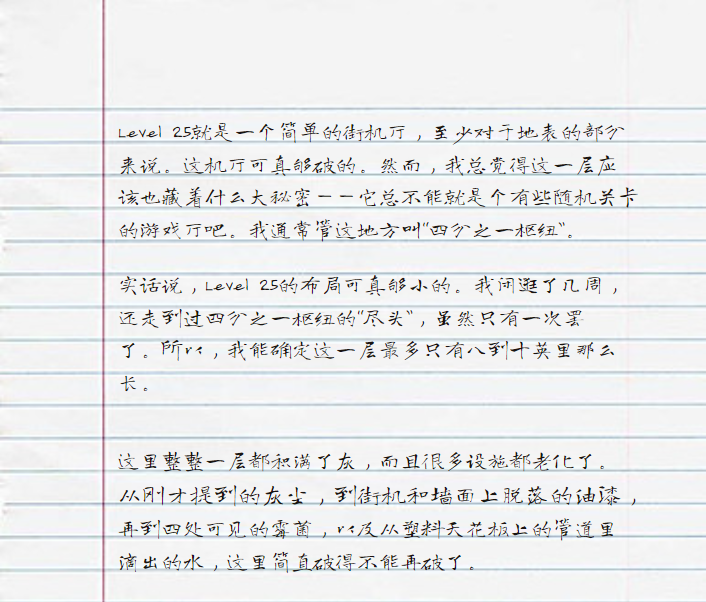 Level 25就是一个简单的街机厅，至少对于地表的部分
来说。这机厅可真够破的。然而，我总觉得这一层应
该也藏着什么大秘密——它总不能就是个有些随机关卡
的游戏厅吧。我通常管这地方叫“四分之一枢纽”。
实话说，Level 25的布局可真够小的。我闲逛了几周，
还走到过四分之一枢纽的“尽头”，虽然只有一次罢
了。所以，我能确定这一层最多只有八到十英里那么
长。
这里整整一层都积满了灰，而且很多设施都老化了。
从刚才提到的灰尘，到街机和墙面上脱落的油漆，
再到四处可见的霉菌，以及从塑料天花板上的管道里
滴出的水，这里简直破得不能再破了。